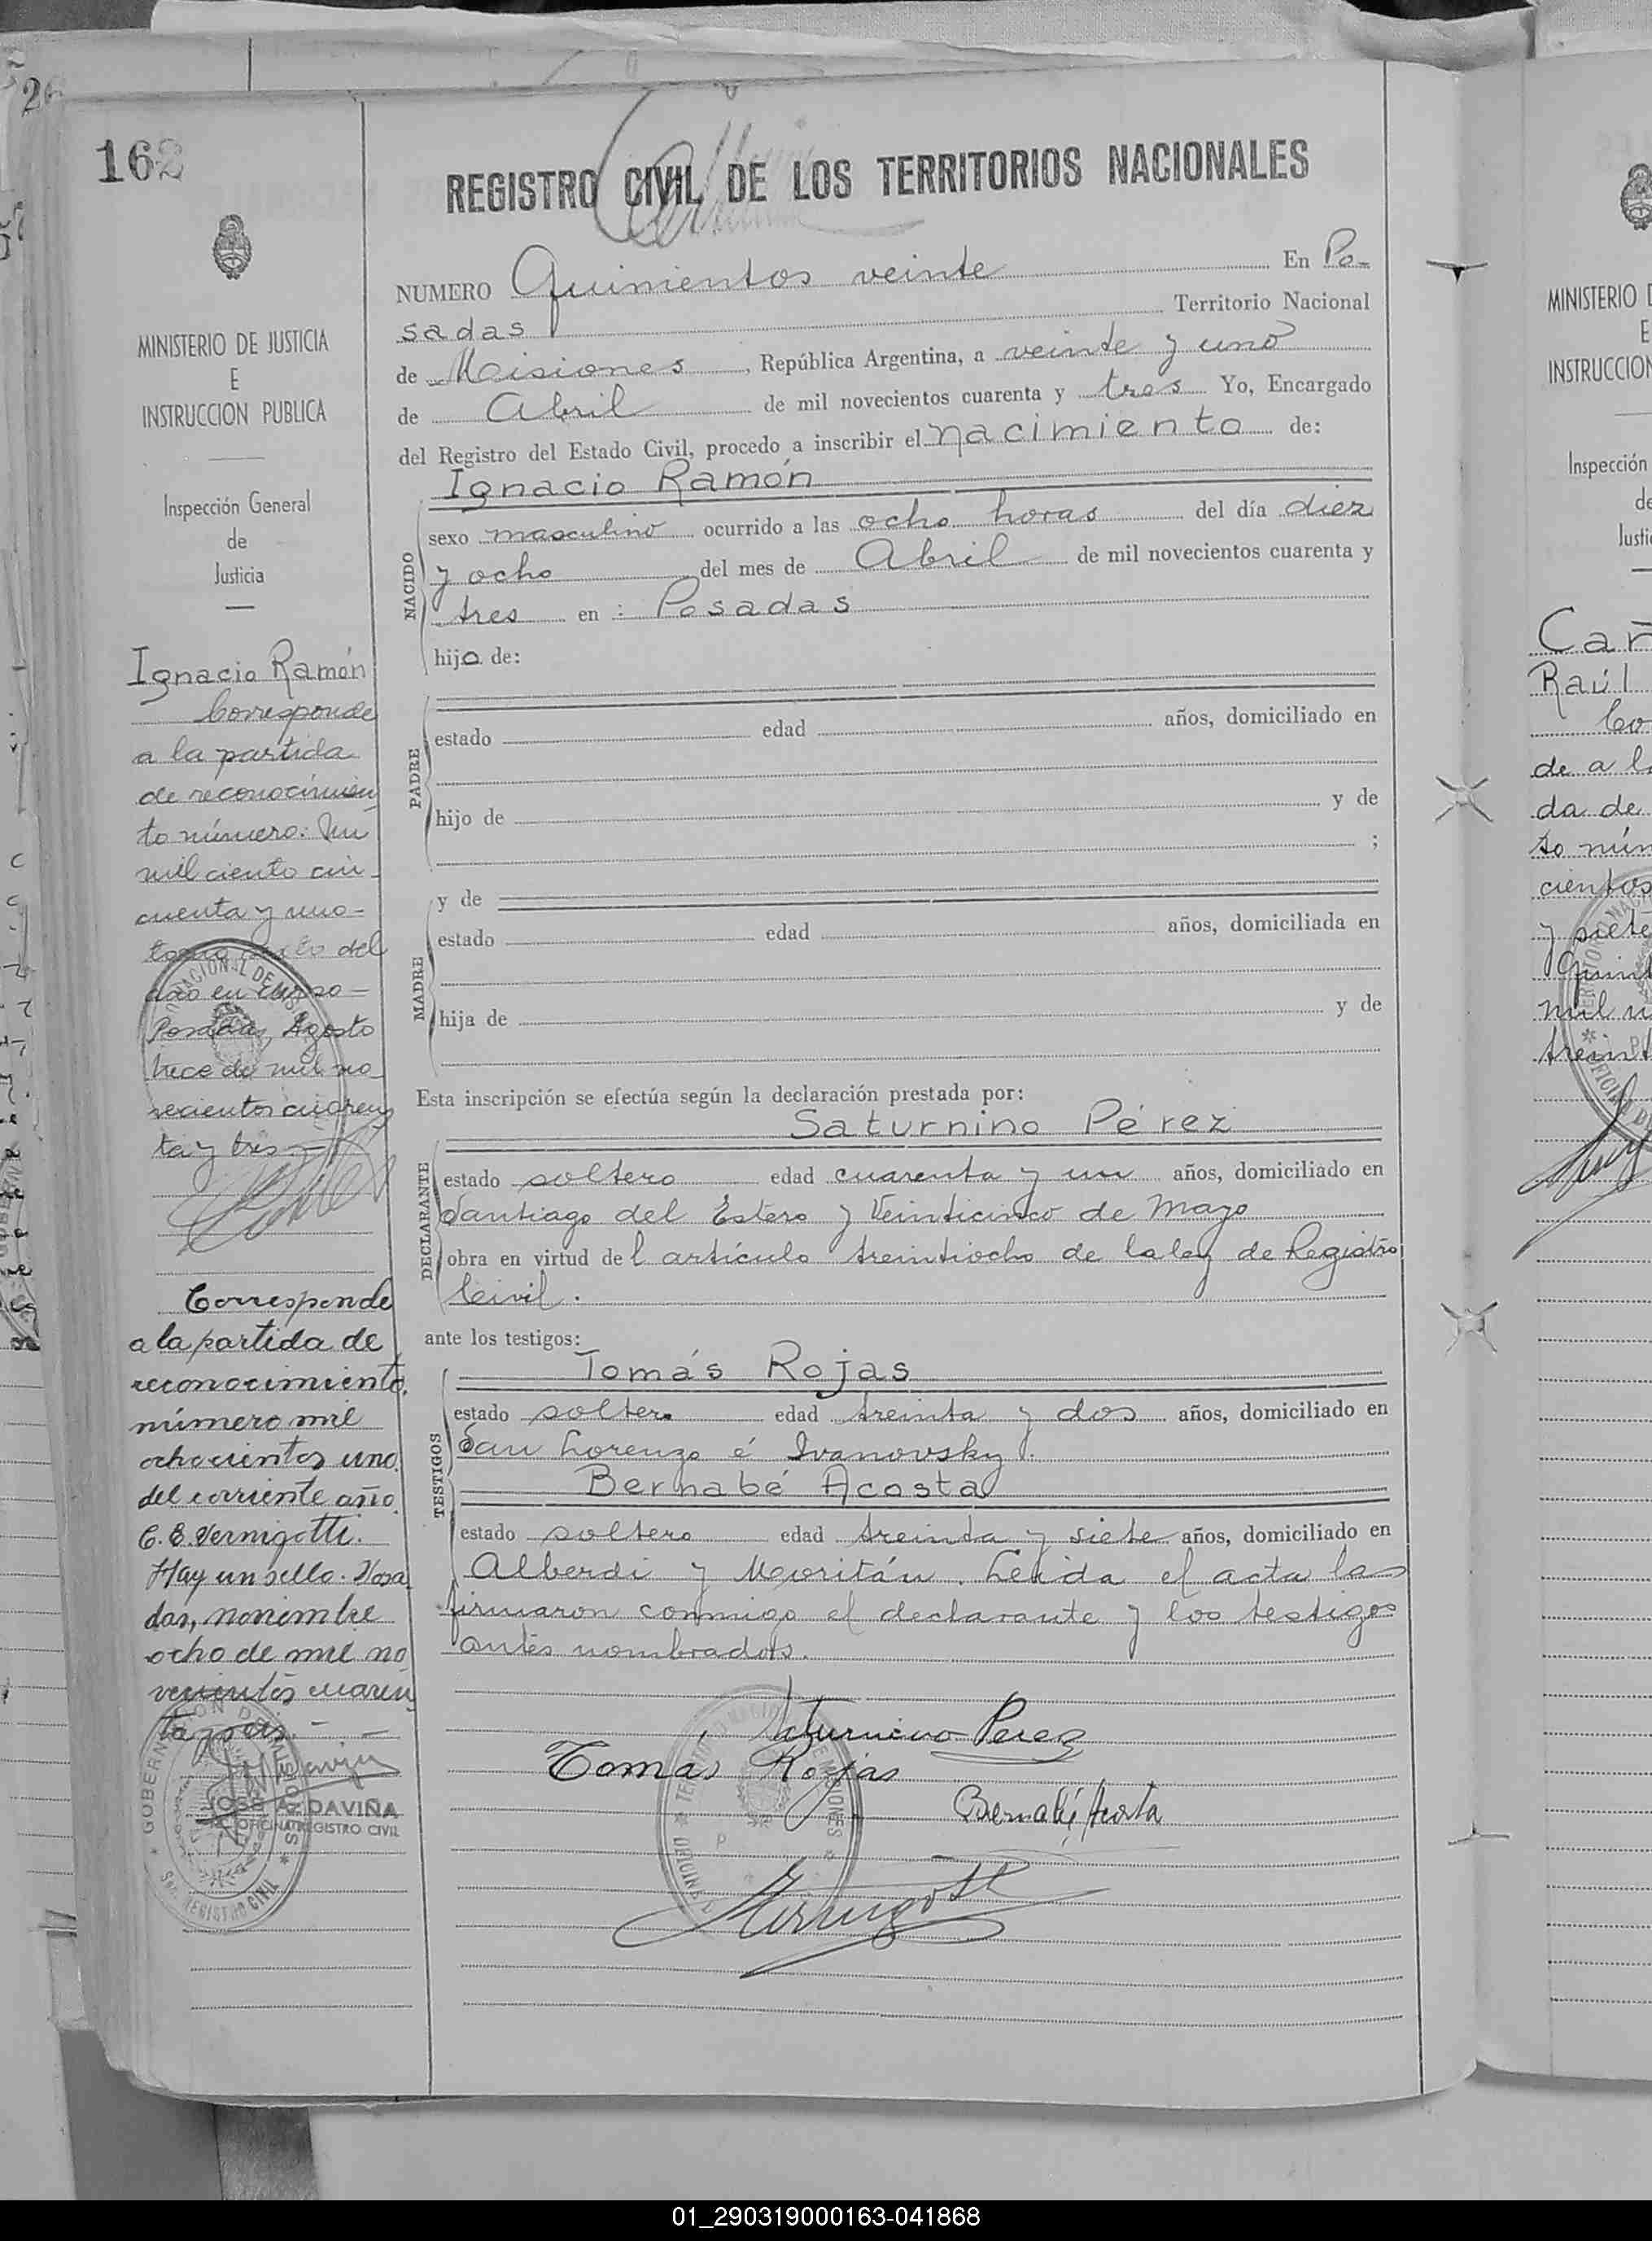 162
MINISTERIO DE JUSTICIA
E
INSTRUCCION PUBLICA
Inspección General
de
Justicia
Ignacio Ramón
Corresponde
a la partida
de reconocimien
to número: Un
mil ciento cin-
cuenta y uno-
del
año en curso-
Posadas, Agosto
trece de mil no-
vecientos cuaren
ta y tres
Corresponde
a la partida de
reconocimiento
número mil
ochocientos uno
del corriente año
C. E. Vernigotti.
Hay un sello. Posa
das, noviembre
ocho de mil no
vecientos cuaren
ta y
JOSE A. DAVIÑA
OFICINA REGISTRO CIVIL
REGISTRO CIVIL DE LOS TERRITORIOS NACIONALES
NUMERO Quinientos veinte En Po-
sadas Territorio Nacional
de Misiones, República Argentina, a veinte y uno
de Abril de mil novecientos cuarenta y tres Yo, Encargado
del Registro del Estado Civil, procedo a inscribir el nacimiento de:
Ignacio Ramón
NACIDO
sexo masculino ocurrido a las ocho horas del día diez
y ocho del mes de Abril de mil novecientos cuarenta y
tres en : Posadas
hijo de:
PADRE
estado edad años, domiciliado en
hijo de y de
;
y de
MADRE
estado edad años, domiciliada en
hija de y de
Esta inscripción se efectúa según la declaración prestada por:
Saturnino Pérez
DECLARANTE
estado soltero edad cuarenta y un años, domiciliado en
Santiago del Estero y Veinticinco de Mayo
obra en virtud del artículo treintiocho de la ley de Registro
Civil.
ante los testigos:
Tomás Rojas
TESTIGOS
estado soltero edad treinta y dos años, domiciliado en
San Lorenzo é Ivanovsky.
Bernabé Acosta
estado soltero edad treinta y siete años, domiciliado en
Alberdi y Moritán. Leída el acta las
firmaron conmigo el declarante y los testigos
antes nombrados.
Saturnino Perez
Tomás Rojas
Bernabé Acosta
MINISTERIO D
E
INSTRUCCION
Inspección
de
Justi
Car
Raúl
Co
de a la
da de
to núm
cientos
y siete
Quin
mil n
trein
01_290319000163-041868